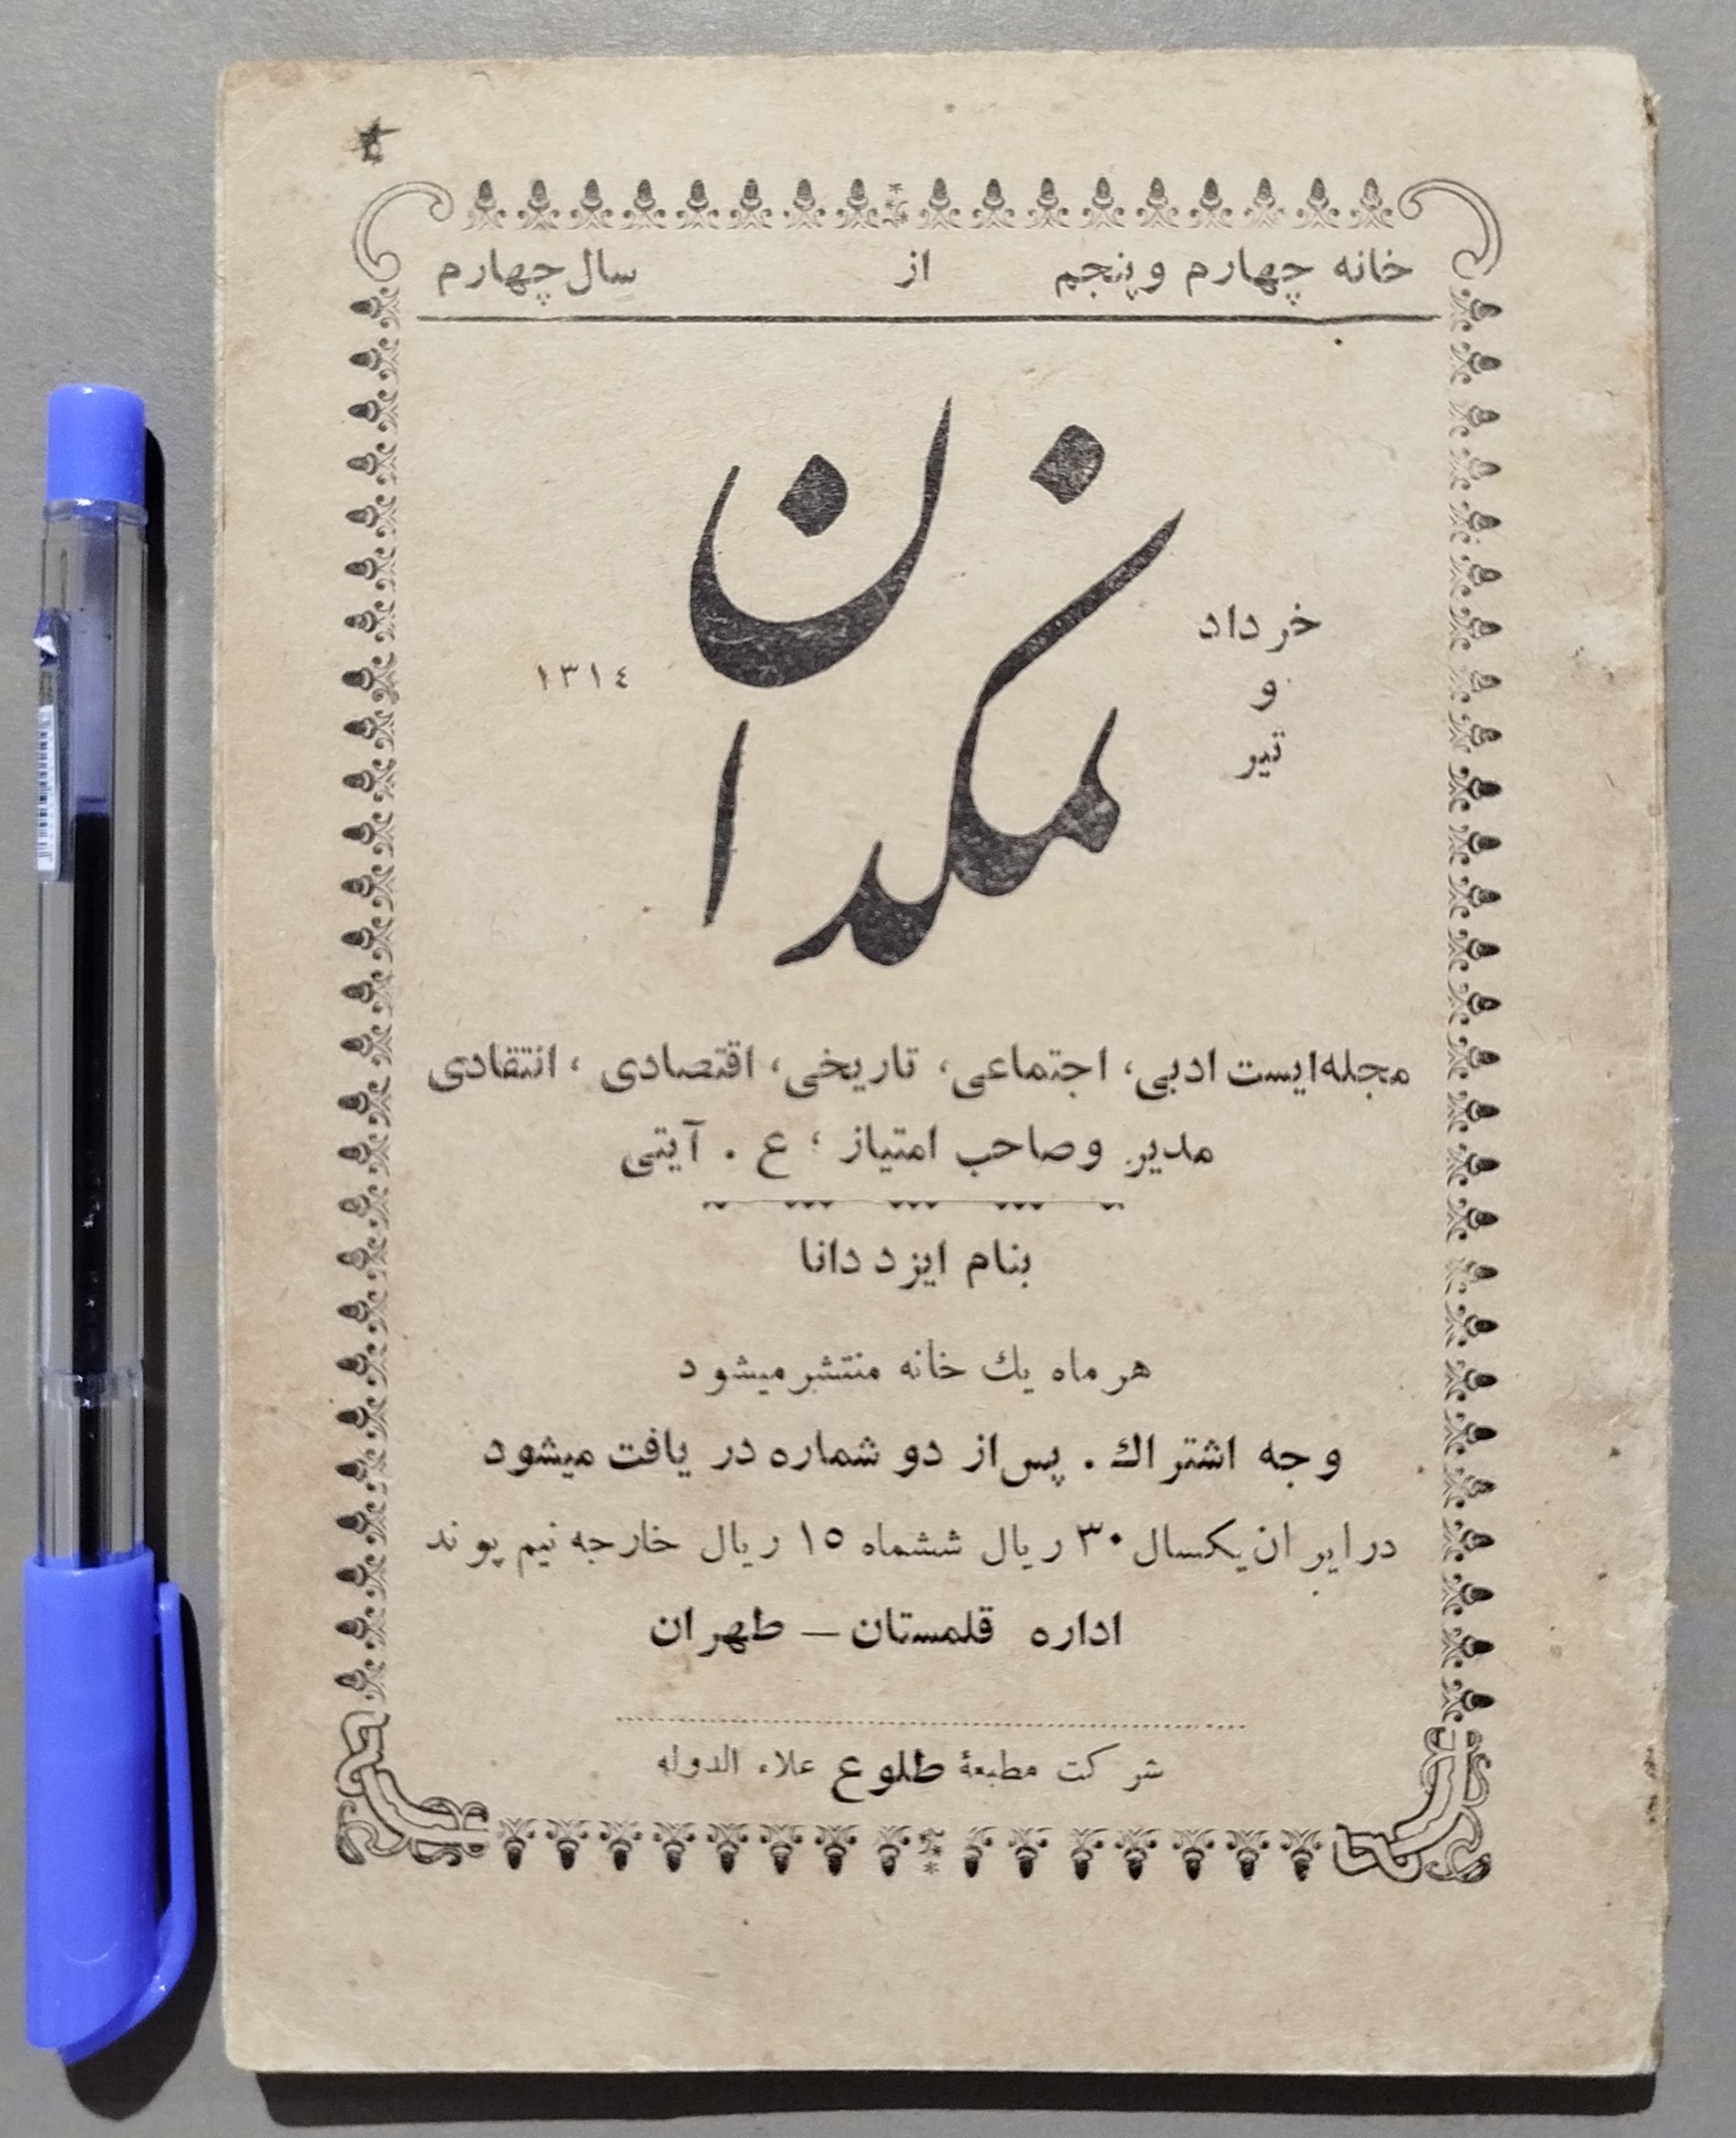 خانه چهارم و پنجم از سال چهارم
نمکدان
خرداد
و
تیر
١٣١٤
مجله‌ایست ادبی، اجتماعی، تاریخی، اقتصادی، انتقادی
مدیر و صاحب امتیاز ؛ ع . آیتی
بنام ایزد دانا
هر ماه يك خانه منتشر میشود
وجه اشتراك . پس از دو شماره دریافت میشود
در ایران یکسال ٣٠ ریال ششماه ١٥ ریال خارجه نیم پوند
اداره قلمستان — طهران
شرکت مطبعهٔ طلوع علاء الدوله